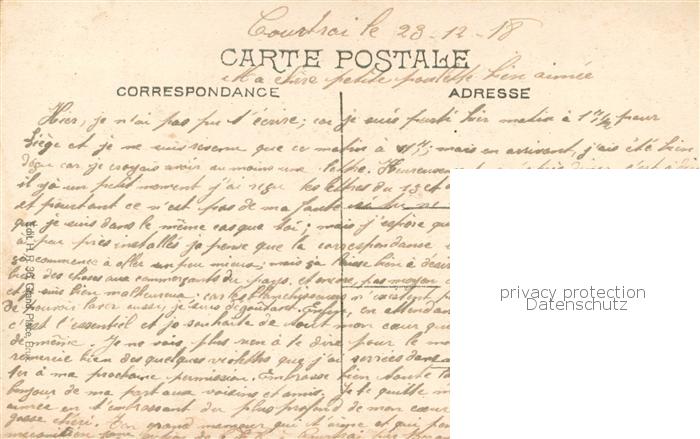 Courtrai le 23-12-18
CARTE POSTALE
Ma chère petite poulette bien aimée
CORRESPONDANCE
ADRESSE
Hier, je n'ai pas pu t'écrire; car je suis parti hier matin à 1 pour
Liège et je ne suis revenu que ce matin à 11h; mais en arrivant, j'ai été bien
déçu car je croyais avoir au moins une lettre. Heureusement
il y a un petit moment j'ai reçu les lettres du 13 et
et pourtant ce n'est pas de ma faute
que je suis dans le même cas que toi; mais j'espère que
à peu près installés je pense que la correspondance
va commencer à aller un peu mieux; mais ça laisse bien à désirer
bien des choses aux commerçants du pays. et encore, pas moyen
et suis bien malheureux; car les blanchisseuses n'existent pas
de pouvoir laver. aussi, je suis dégoûtant. Enfin, en attendant
c'est l'essentiel et je souhaite de tout mon cœur que
de même. Je ne vois plus rien à te dire pour le mo
remercie bien des quelques violettes que j'ai serrées dans
à ma prochaine permission. Embrasse bien toute la
bonjour de ma part aux voisins et amis. Je te quitte
aimée en t'embrassant du plus profond de mon cœur
gosse chéri. Ton grand qui t'aime et qui
Edit. H. B. 36, Grand'Place,
privacy protection
Datenschutz